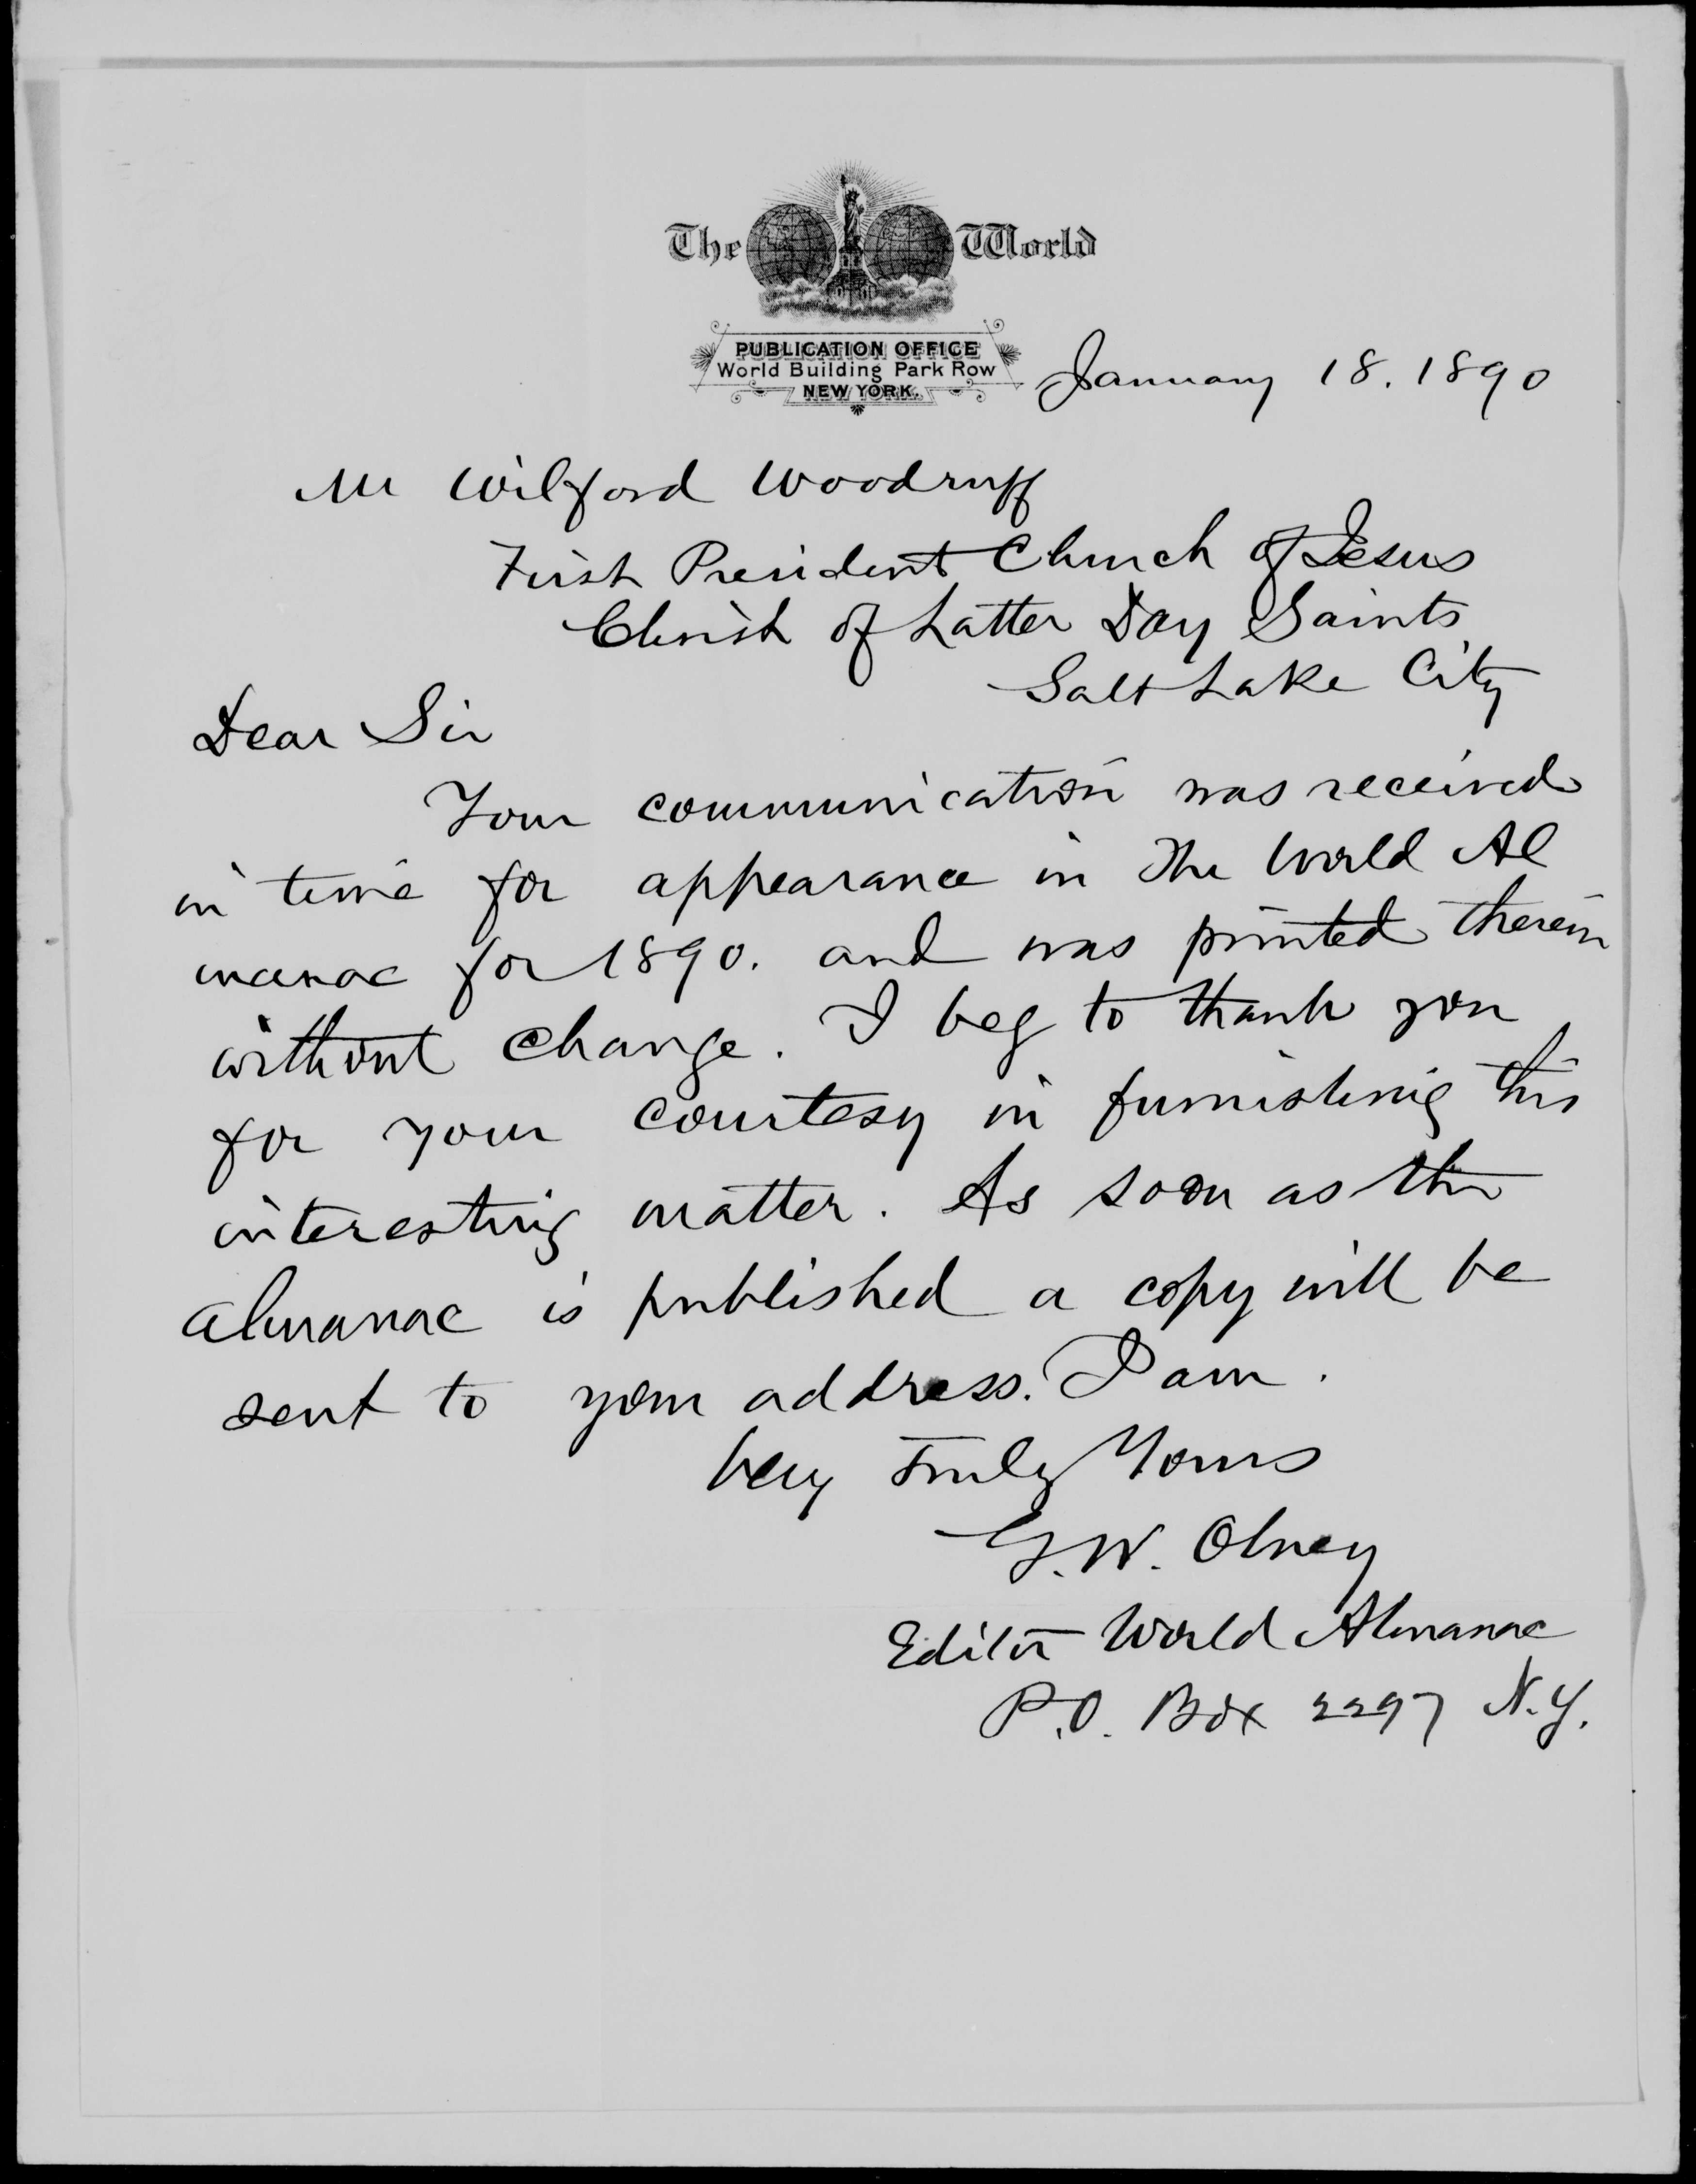 The World
PUBLICATION OFFICE
World Building Park Row
NEW YORK.
January 18. 1890
Mr Wilford Woodruff
First President Church of Jesus
Christ of Latter Day Saints
Salt Lake City
Dear Sir
Your communication was received
in time for appearance in The World Al
manac for 1890. and was printed therein
without change. I beg to thank you
for your courtesy in furnishing this
interesting matter. As soon as the
almanac is published a copy will be
sent to your address. I am.
Very Truly Yours
G.W. Olney
Editor World Almanac
P.O. Box 2297 N.Y.